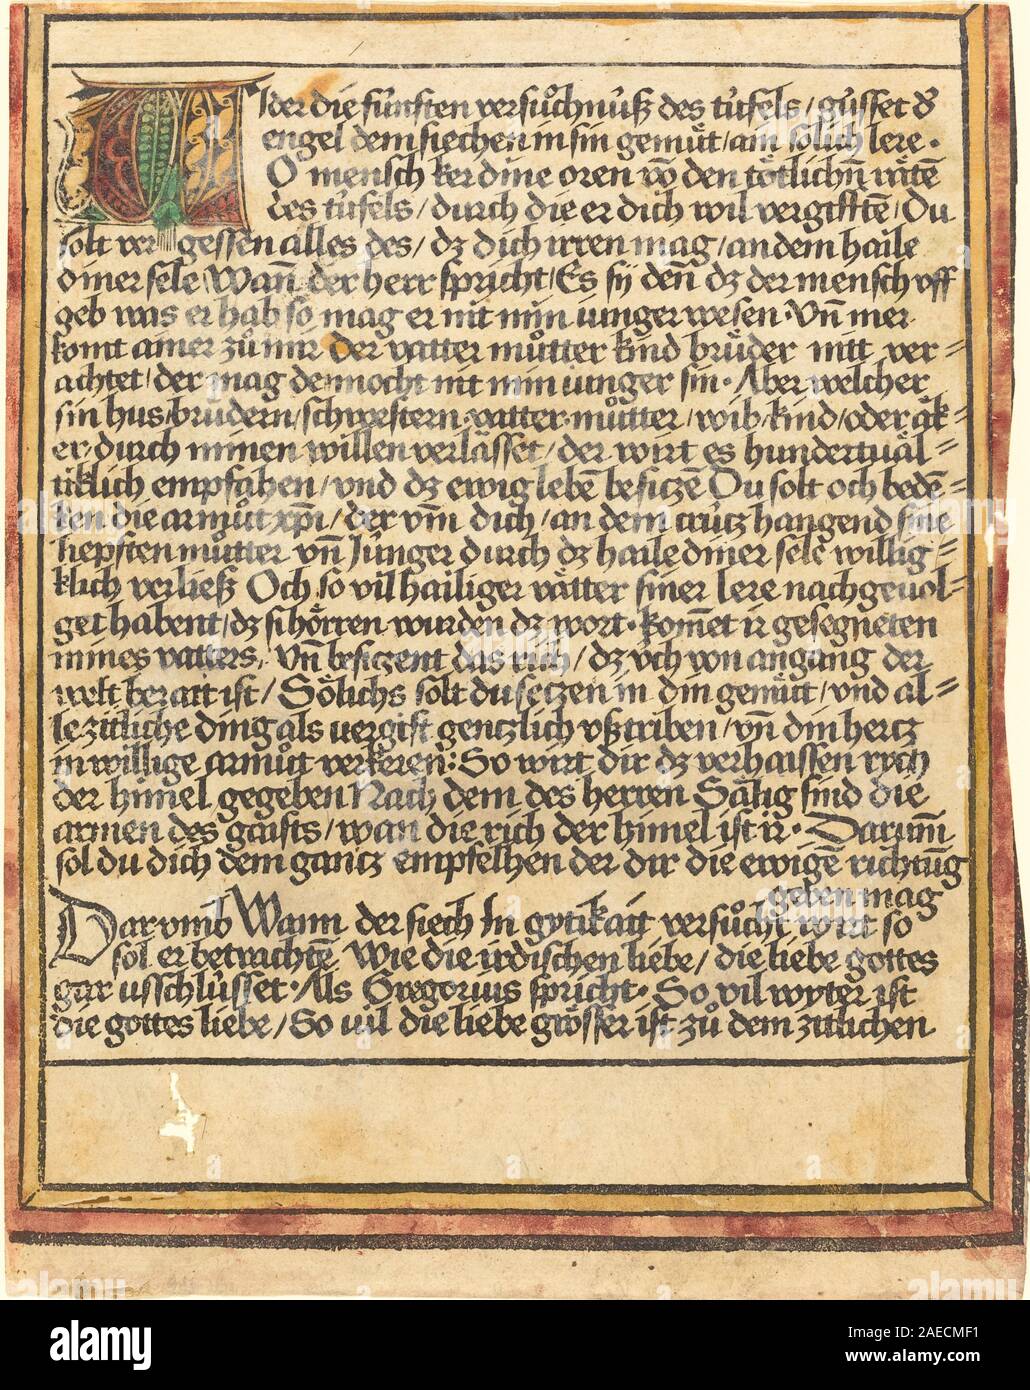 Wider die fúnften versůchnúß des túfels / gússet d'
engel dem siechen in sin gemüt / ain sölich lere ·
O mensch ker dine oren võ den tötlichñ rätẽ
des túfels / durch die er dich wil vergifftẽ / Du
solt ver gessen alles des / dz dich irren mag / an dem haile
diner sele / Wañ der herr spricht / Es sy deñ dz der mensch vff
geb was er hab so mag er nit min iunger wesen · Vñ wer
komt ainer zů mir der vatter můtter kind brüder nitt ver=
achtet / der mag dennocht nit min iunger sin · Aber welcher
sin hus / brüdern / schwestern · vatter · můtter / wib / kind / oder äk=
er / durch minen willen verlässet / der wirt es hundertuäl=
tiklich empfahen / vnd dz ewig lebẽ besiczẽ Du solt och bedẽ=
ken die armůtt xp̃i / der vm̃ dich / an dem crútz hangend sine
liepsten můtter vñ Júnger durch dz haile diner sele willig=
klich verließ Och so vil hailiger vätter siner lere nachgeuol=
get habent / dz si hörren wurden dz wort · kom̃et ir gesegneten
mines vatters, Vñ besiczent das rich / dz vch von angang der
welt berait ist / Sölichs solt du seczen in din gemütt / vnd al=
le zittliche ding als vergift genczlich vßtriben / vñ din hertz
in willige armůtt verkeren : So wirt dir dz verhaissen rych
der himel gegeben Nach dem des herren Sälig sind die
armen des gaists / wan die rich der himel ist ir · Darum̃
sol du dich dem gantz empfelhen der dir die ewigẽ richtũg
geben mag
Dar vmb Wann der siech In gytikait versůcht wirt so
sol er betrachtẽ Wie die irdischen liebe / die liebe gottes
gar usschlússet · Als Gregorius spricht · So vil wyter ist
die gottes liebe / So uil die liebe grösser ist zů dem zitlichen
alamy
Image ID: 2AECMF1
www.alamy.com